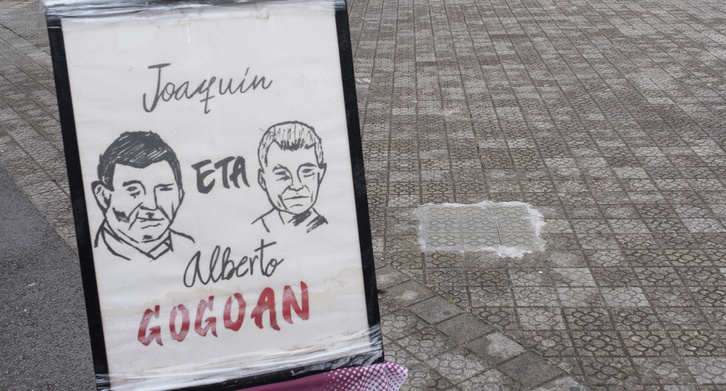 Joaquín
ETA
Alberto
GOGOAN